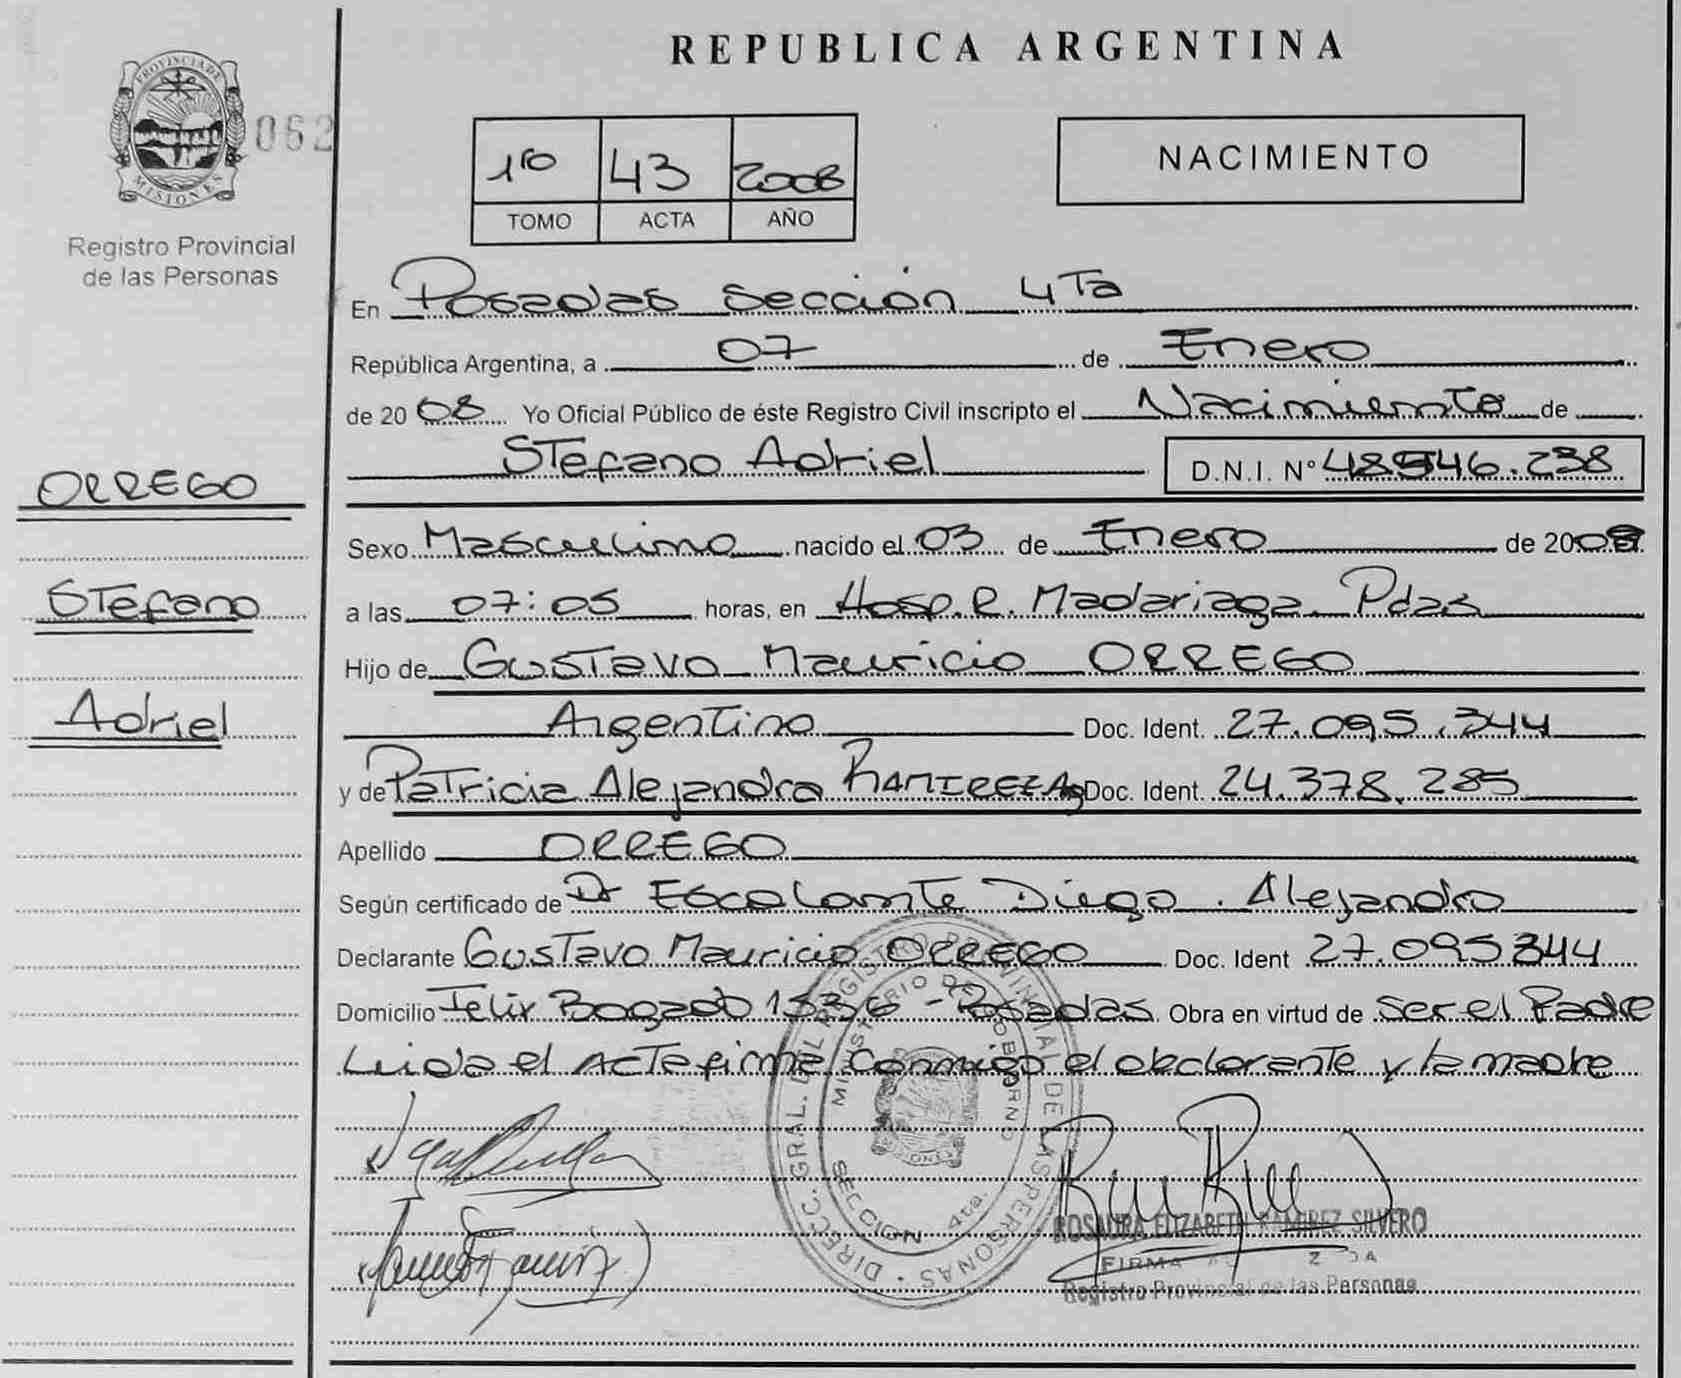 REPUBLICA ARGENTINA
PROVINCIA DE
MISIONES
062
Registro Provincial
de las Personas
1ro 43 2008
TOMO ACTA AÑO
NACIMIENTO
En Posadas sección 4Ta
República Argentina, a 07 de Enero
de 2008 Yo Oficial Público de éste Registro Civil inscripto el Nacimiento de
Stefano Adriel D.N.I. Nº 48546.238
ORREGO
Stefano
Adriel
Sexo Masculino nacido el 03 de Enero de 2008
a las 07:05 horas, en Hosp. R. Madariaga. Pdas
Hijo de Gustavo Mauricio ORREGO
Argentino Doc. Ident. 27.095.344
y de Patricia Alejandra RAMIREZ Ag Doc. Ident. 24.378.285
Apellido ORREGO
Según certificado de Dr Escalante Diego. Alejandro
Declarante Gustavo Mauricio ORREGO Doc. Ident 27.095344
Domicilio Felix Bogado 1536 - Posadas Obra en virtud de ser el Padre
Leida el Acta firma conmigo el declarante y la madre
DIRECC. GRAL. DEL REGISTRO PROVINCIAL DE LAS PERSONAS
MINISTERIO DE GOBIERNO
SECCION 4ta.
ROSAURA ELIZABETH RAMIREZ SILVERO
FIRMA
Registro Provincial de las Personas